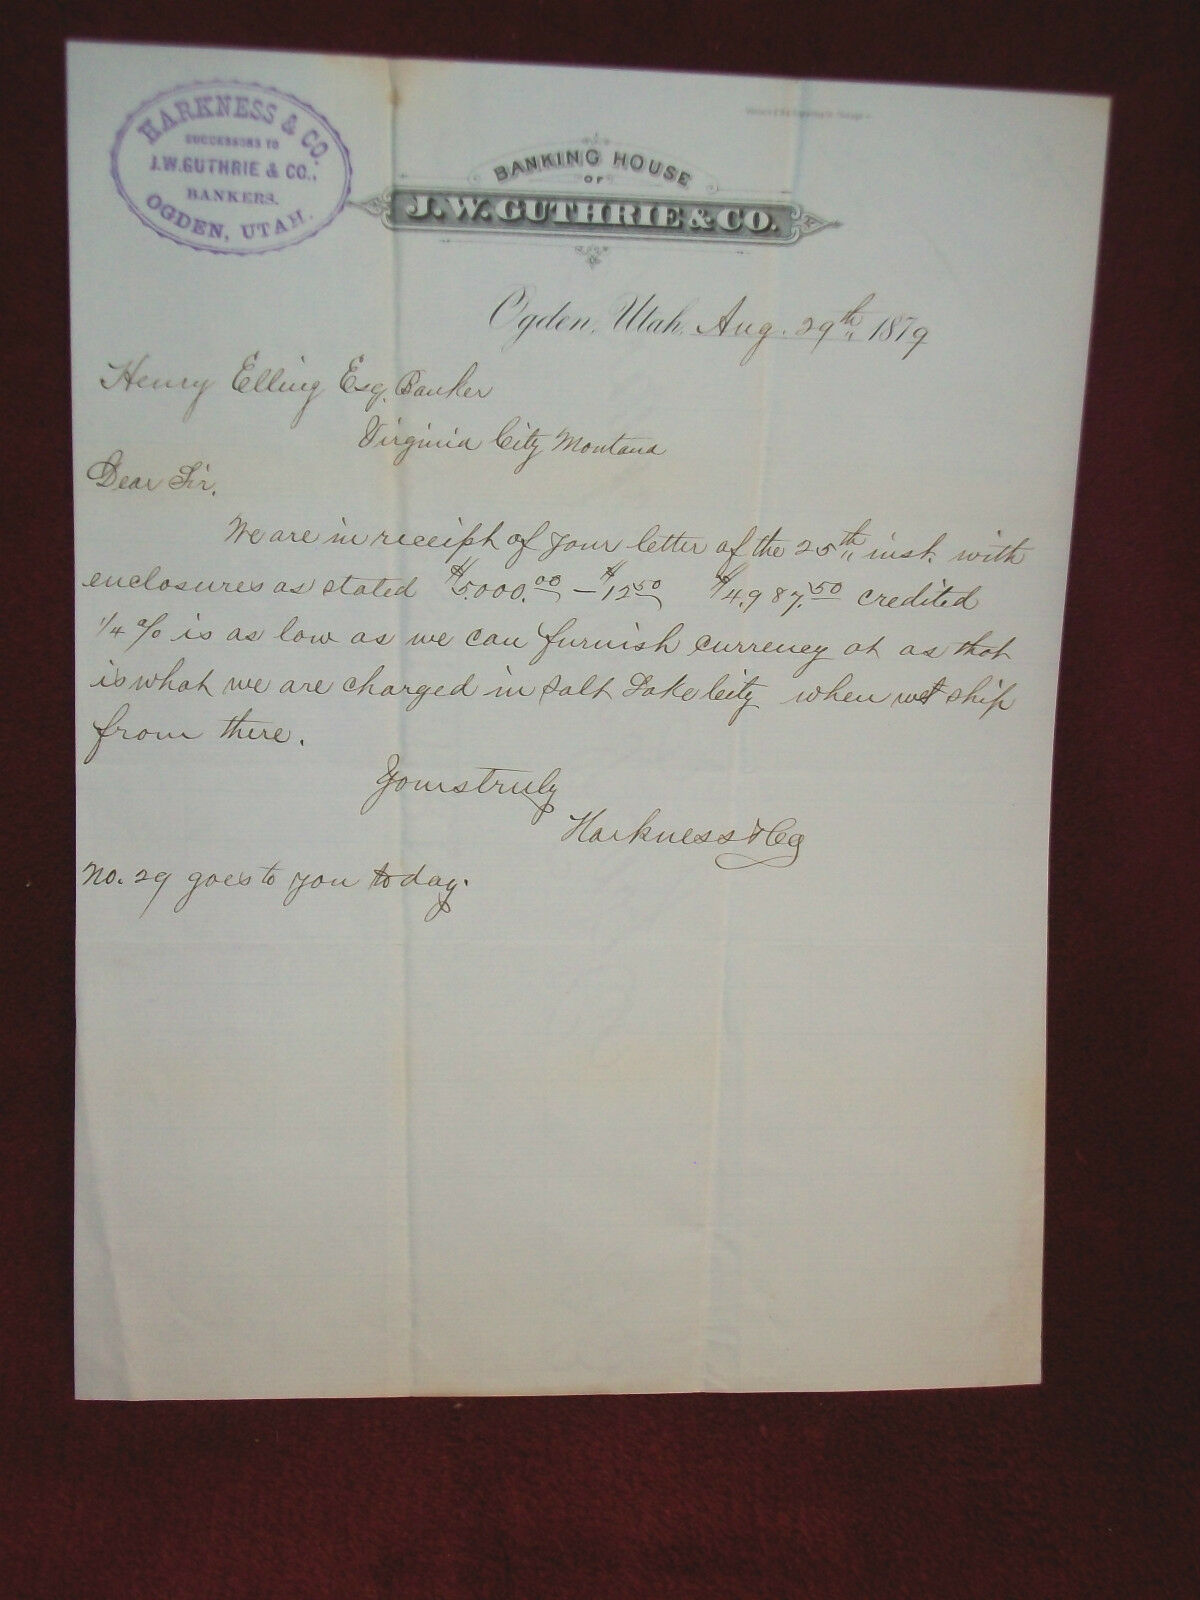 HARKNESS & CO.
SUCCESSORS TO
J.W. GUTHRIE & CO.,
BANKERS.
OGDEN, UTAH.
BANKING HOUSE
OF
J.W. GUTHRIE & CO.
Ogden, Utah, Aug. 29th 1879
Henry Elling Esq. Banker
Virginia City Montana
Dear Sir,
We are in receipt of your letter of the 25th inst. with
enclosures as stated $5.000.00 — $12 50 $4.987.50 credited
1/4 % is as low as we can furnish currency at as that
is what we are charged in Salt Lake City when we ship
from there.
Yours truly
Harkness & Co
No. 29 goes to you today.